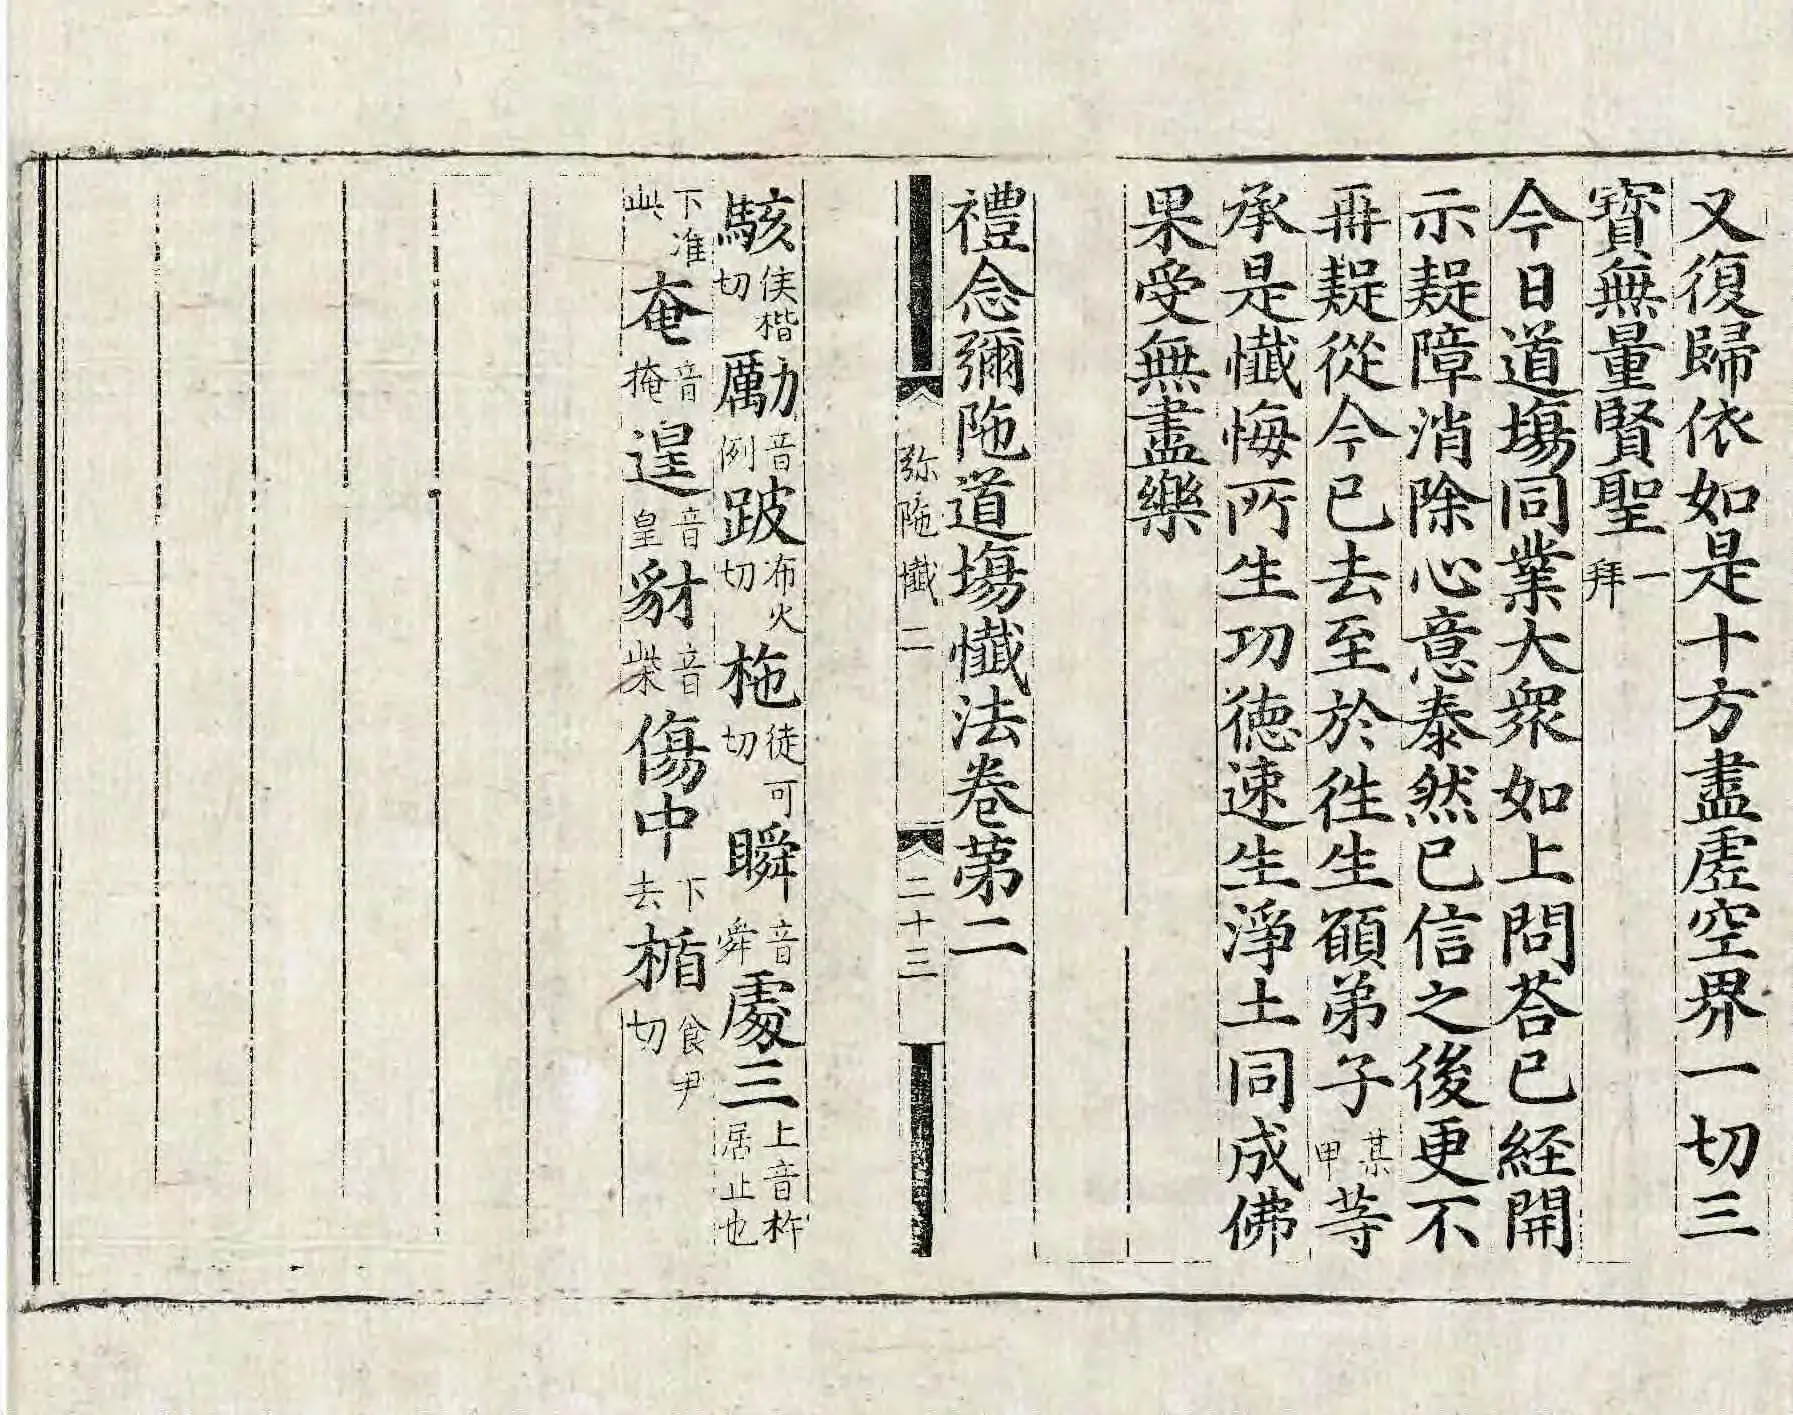 又復歸依如是十方盡虛空界一切三
寶無量賢聖一拜
今日道場同業大衆如上問荅已經開
示疑障消除心意泰然已信之後更不
再疑從今已去至於徃生願弟子某甲等
承是懺悔所生功德速生淨土同成佛
果受無盡樂
禮念彌陁道場懺法卷第二
弥陁懺二 二十三
駭侯楷切勵音例跛布火切柂徒可切瞬音舜處三上音杵居止也
下准此奄音掩遑音皇豺音柴傷中下去楯食尹切